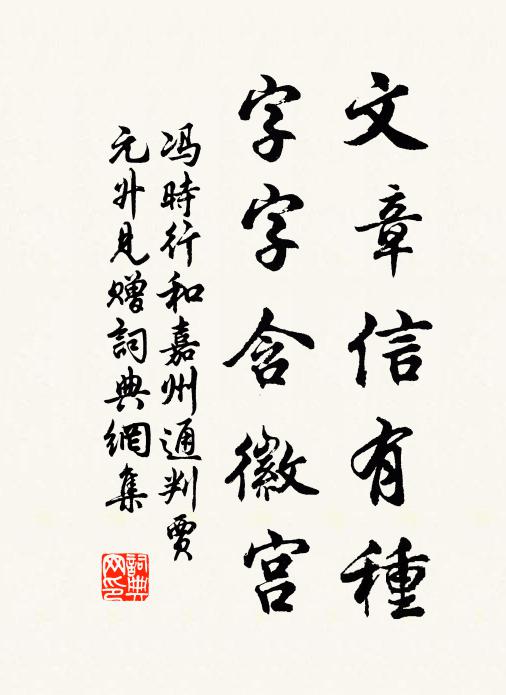 文章信有種
字字含徽宫
冯時行和嘉州通判贾
元升見赠詞典網集
詞典网印